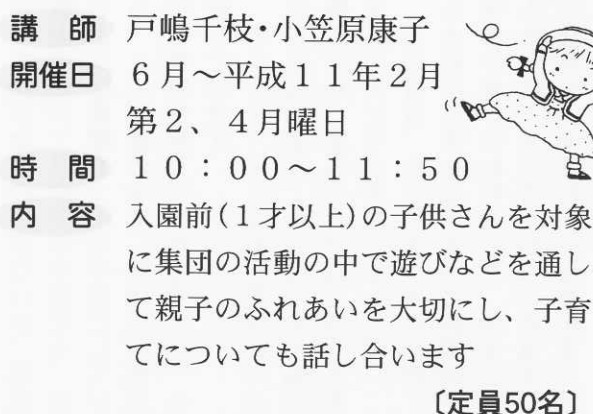 講　師　戸嶋千枝・小笠原康子
開催日　６月～平成１１年２月
第２、４月曜日
時　間　１０：００～１１：５０
内　容　入園前(１才以上)の子供さんを対象
に集団の活動の中で遊びなどを通し
て親子のふれあいを大切にし、子育
てについても話し合います
〔定員50名〕